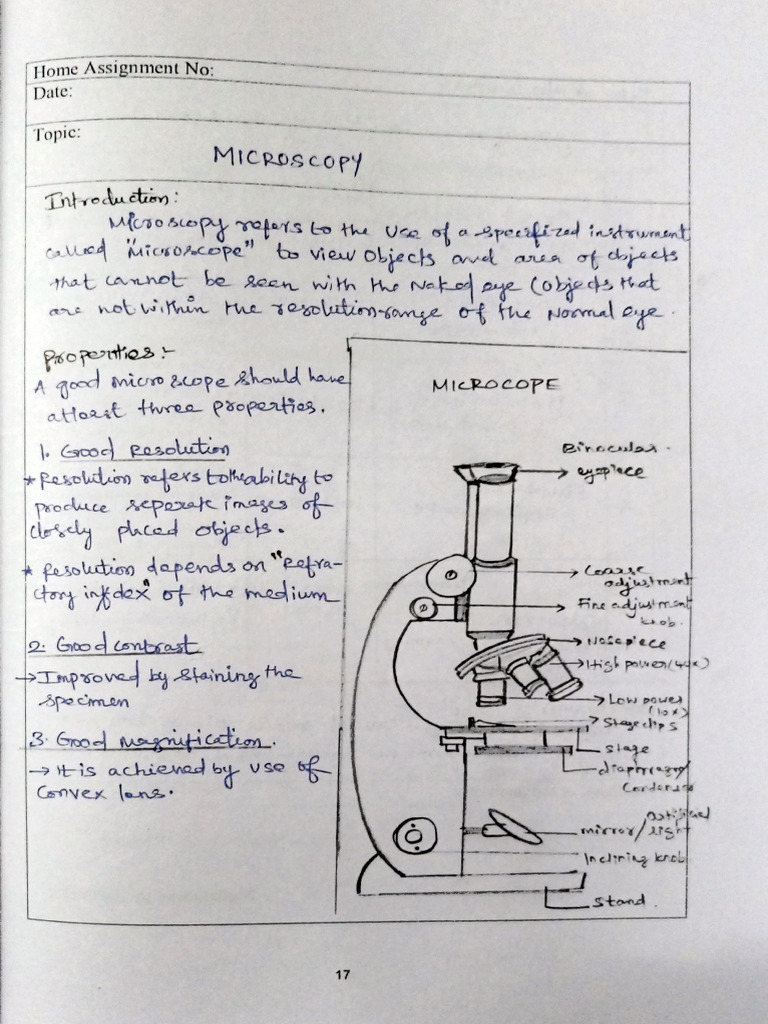 Home Assignment No:
Date:
Topic:
MICROSCOPY
Introduction:
Microscopy refers to the use of a specified instrument
called "Microscope" to view objects and area of objects
that cannot be seen with the Naked eye (objects that
are not within the resolution-range of the Normal eye.
Properties:-
A good microscope should have
atleast three properties.
1. Good Resolution
* Resolution refers to the ability to
produce seperate images of
closely placed objects.
* Resolution depends on "Refra-
ctory index" of the medium
2. Good contrast
→ Improved by staining the
specimen
3. Good magnification.
→ It is achieved by use of
Convex lens.
MICROCOPE
Binocular
eyepiece
Coarse
adjustment
Fine adjustment
knob.
Nosepiece
High power (40x)
Low power
(10x)
Stage clips
stage
diaphragm/
Condenser
mirror/
light
Inclining knob
Stand.
17